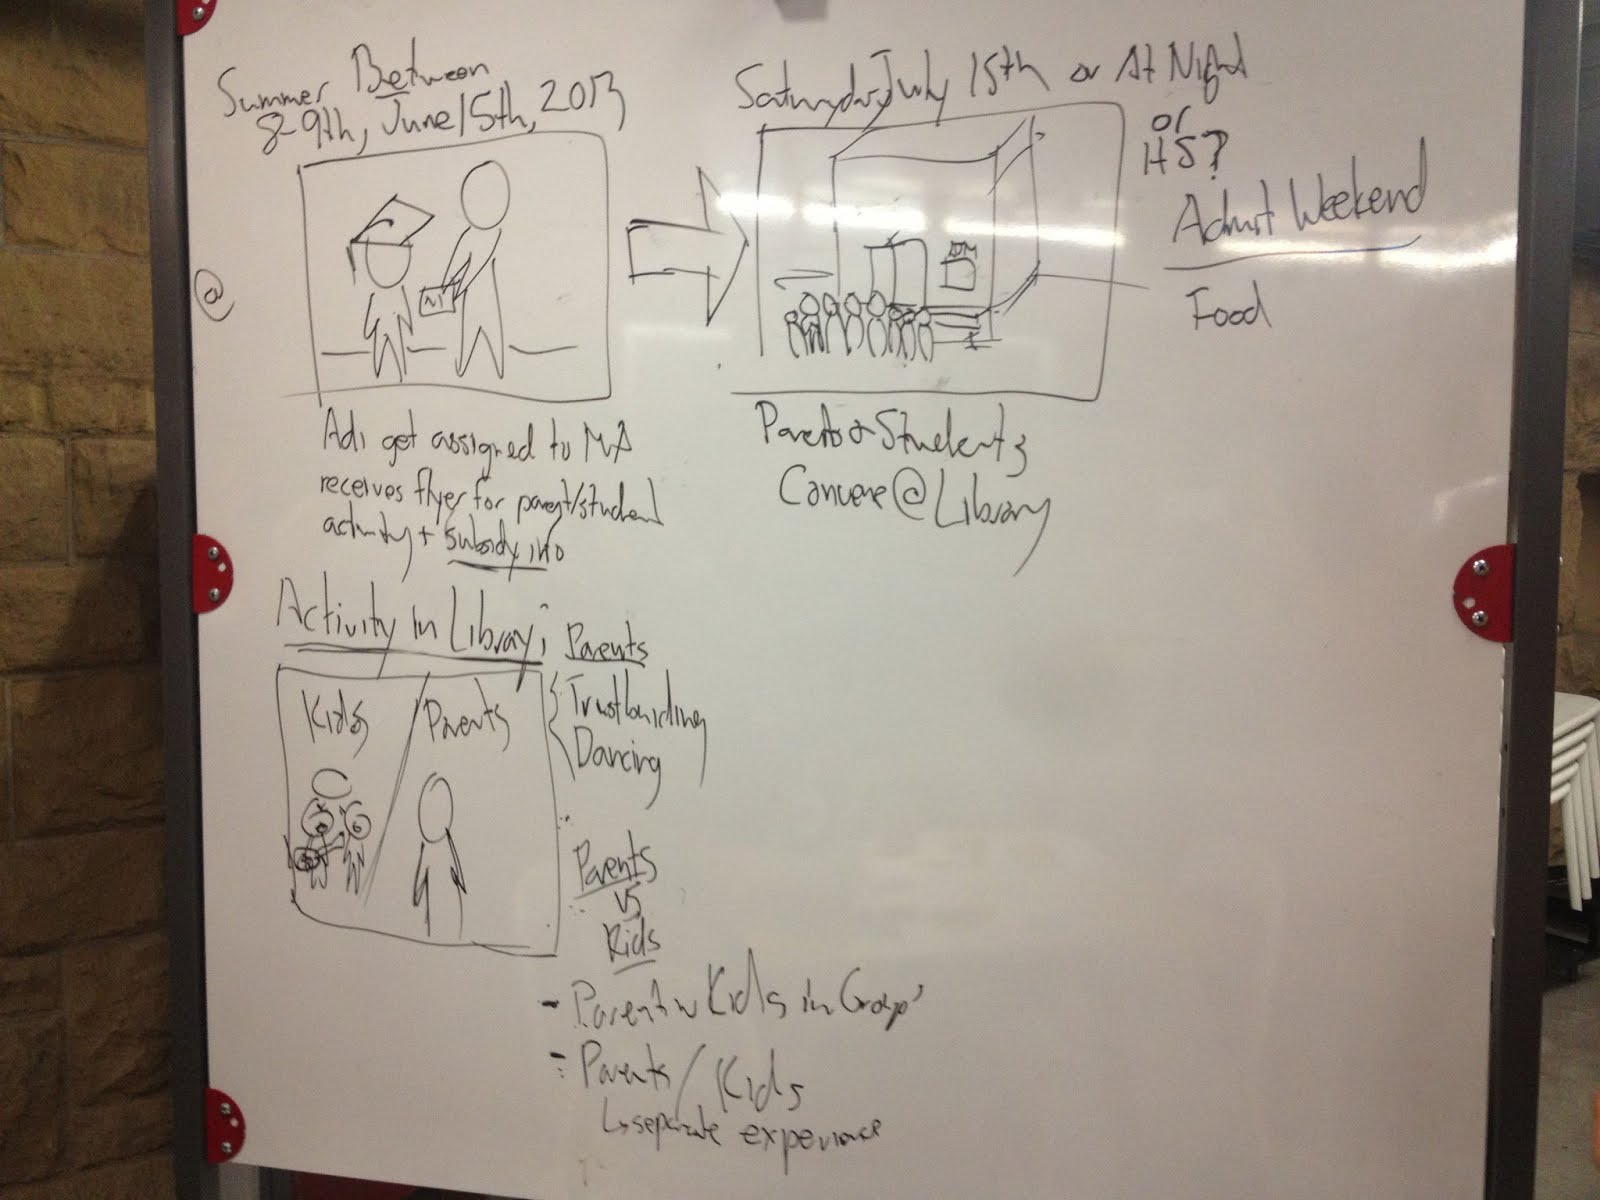 Summer Between
8-9th, June 15th, 2013
Saturday July 15th or At Night
or
HS?
Admit Weekend
Food
@
Adi get assigned to MA
receives flyer for parent/student
activity + subsidy info
Parents & Students
Convene @ Library
Activity in Library;
Kids
Parents
Parents
Trustbuilding
Dancing
Parents
vs
Kids
- Parent w Kids in Group
- Parents / Kids
↳ separate experience